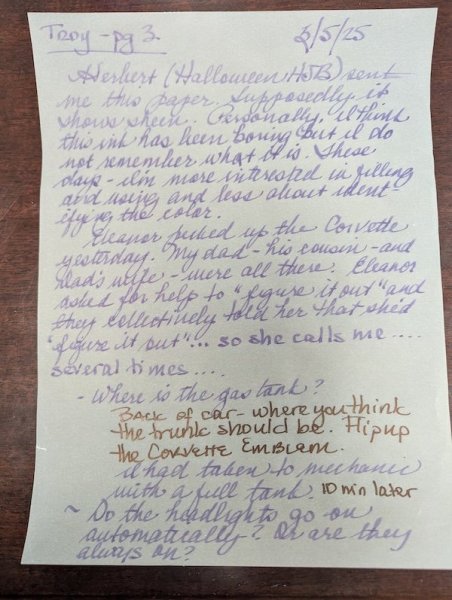 Troy - pg 3. 3/5/25
Herbert (Halloween HJB) sent
me this paper. Supposedly it
shows sheen. Personally, I think
this ink has been boring but I do
not remember what it is. These
days - I'm more interested in filling
and using and less about ident-
ifying the color.
Eleanor picked up the Corvette
yesterday. My dad - his cousin - and
dad's wife - were all there. Eleanor
asked for help to "figure it out" and
they collectively told her that she'd
"figure it out"... so she calls me....
several times....
- Where is the gas tank?
Back of car - where you think
the trunk should be. Flip up
the Corvette Emblem.
I had taken to mechanic
with a full tank. 10 min later
~ Do the headlights go on
automatically? Or are they
always on?